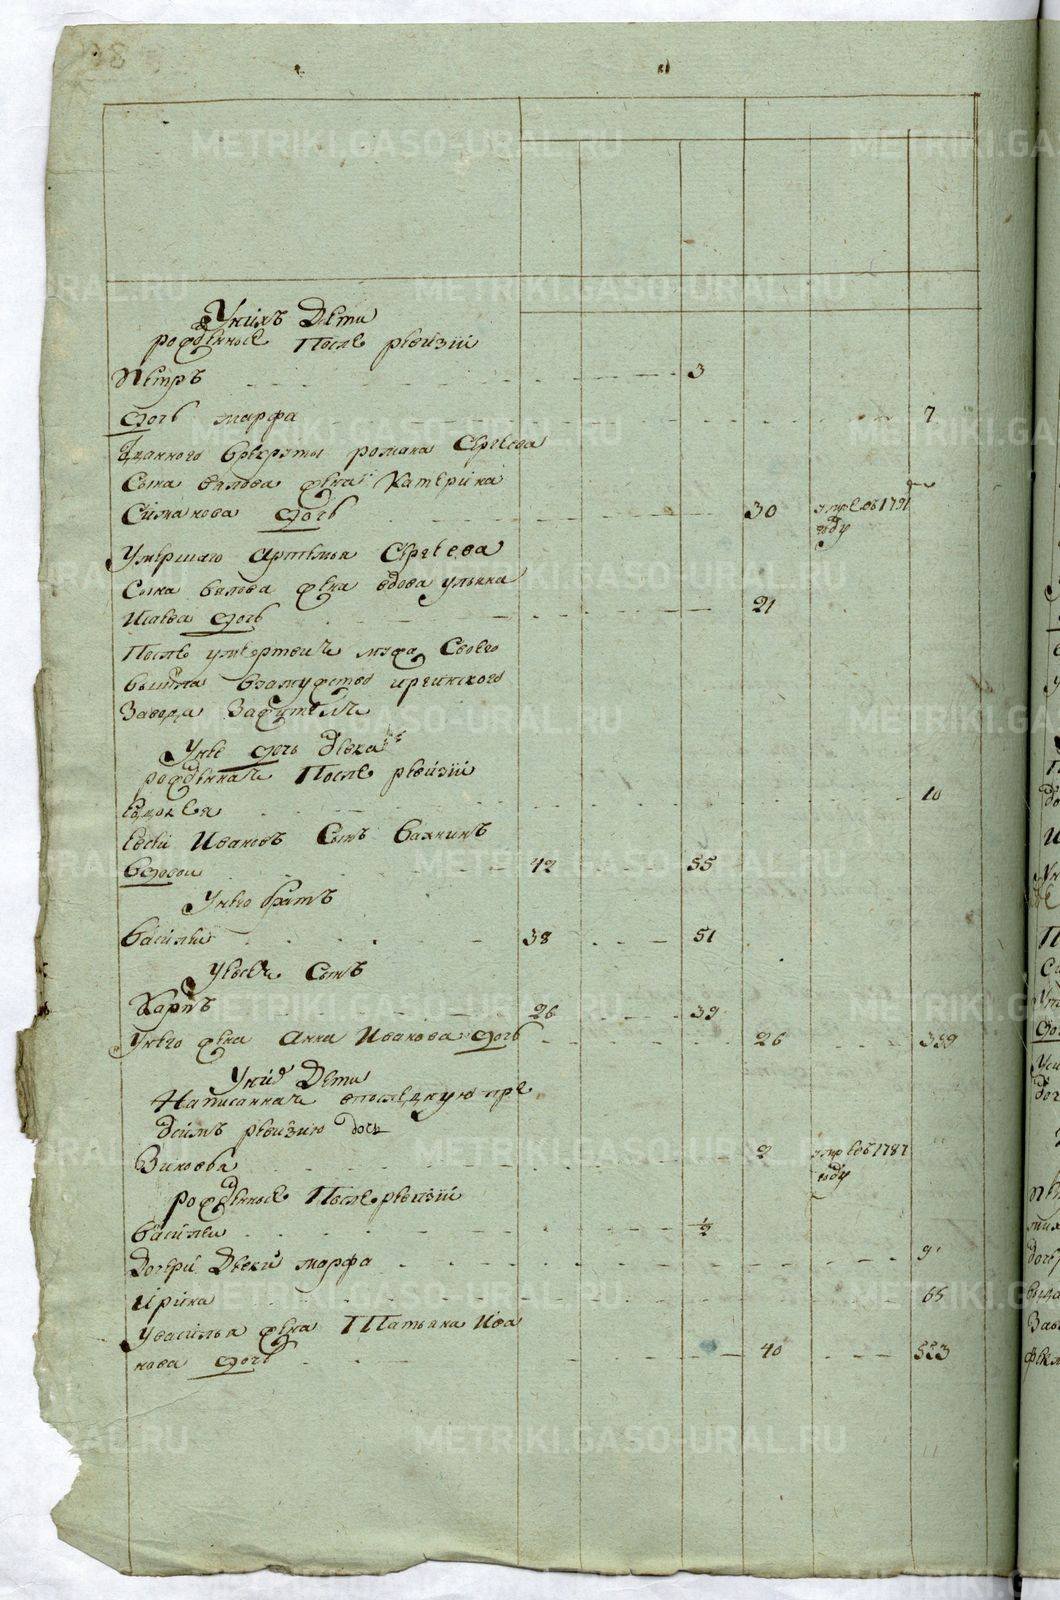 У нихъ дети
рожденные После ревизии
Петръ 3
дочь марфа 7
отданного в рекруты романа Сергеева
Сына валова жена Катерина
Симанова дочь 30 умре въ 1791
году
Умершаго Артемья Сергеева
Сына валова жена вдова ульяна
Исаева дочь 21
После умертвия мужа Своего
вышла взамужство иргинского
Завода
У нее дочь девка
рожденная После ревизии
Евдокея 10
Евсей Ивановъ Сынъ
вдовой 42 55
У него братъ
Василей 38 51
У евсея Сынъ
Карпъ 26 39
У него жена Анна Иванова дочь 26 339
У них Дети
Написанная в последнюю пре
д симъ ревизию дочь
Зиновья 2 умре въ 1787
году
рожденные После ревизии
Василеи ½
Дочери Девки марфа 9
Ирина 65
У василья жена Татьяна Ива
нова дочь 40 553
METRIKI.GASO-URAL.RU